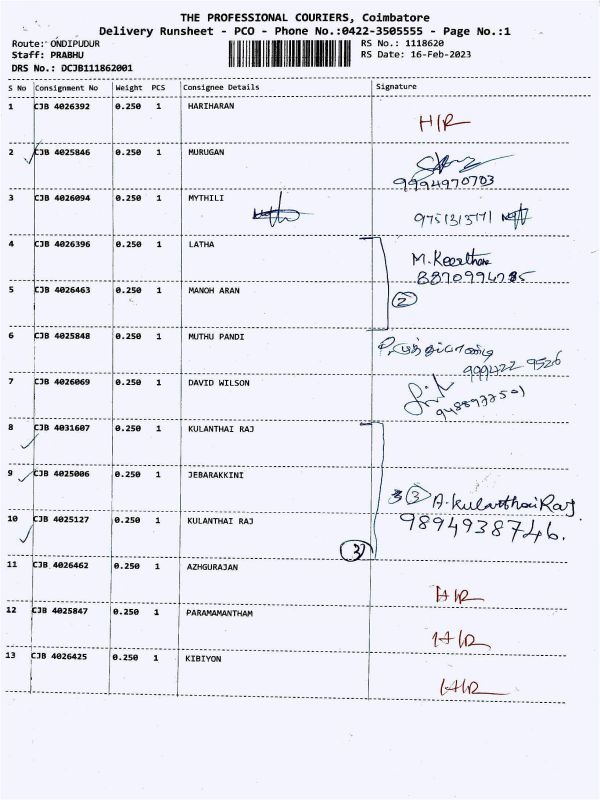 THE PROFESSIONAL COURIERS, Coimbatore
Delivery Runsheet - PCO - Phone No.:0422-3505555 - Page No.:1
Route: ONDIPUDUR RS No.: 1118620
Staff: PRABHU RS Date: 16-Feb-2023
DRS No.: DCJB111862001
S No Consignment No Weight PCS Consignee Details Signature
1 CJB 4026392 0.250 1 HARIHARAN
H/R
2 CJB 4025846 0.250 1 MURUGAN
9994970703
3 CJB 4026094 0.250 1 MYTHILI
4 CJB 4026396 0.250 1 LATHA
M. Keerthana
5 CJB 4026463 0.250 1 MANOH ARAN
2
6 CJB 4025848 0.250 1 MUTHU PANDI
999422 9526
7 CJB 4026069 0.250 1 DAVID WILSON
8 CJB 4031607 0.250 1 KULANTHAI RAJ
9 CJB 4025006 0.250 1 JEBARAKKINI
3 A. Kulanthai Raj
10 CJB 4025127 0.250 1 KULANTHAI RAJ
9894938746.
3
11 CJB 4026462 0.250 1 AZHGURAJAN
H/R
12 CJB 4025847 0.250 1 PARAMAMANTHAM
H/R
13 CJB 4026425 0.250 1 KIBIYON
H/R